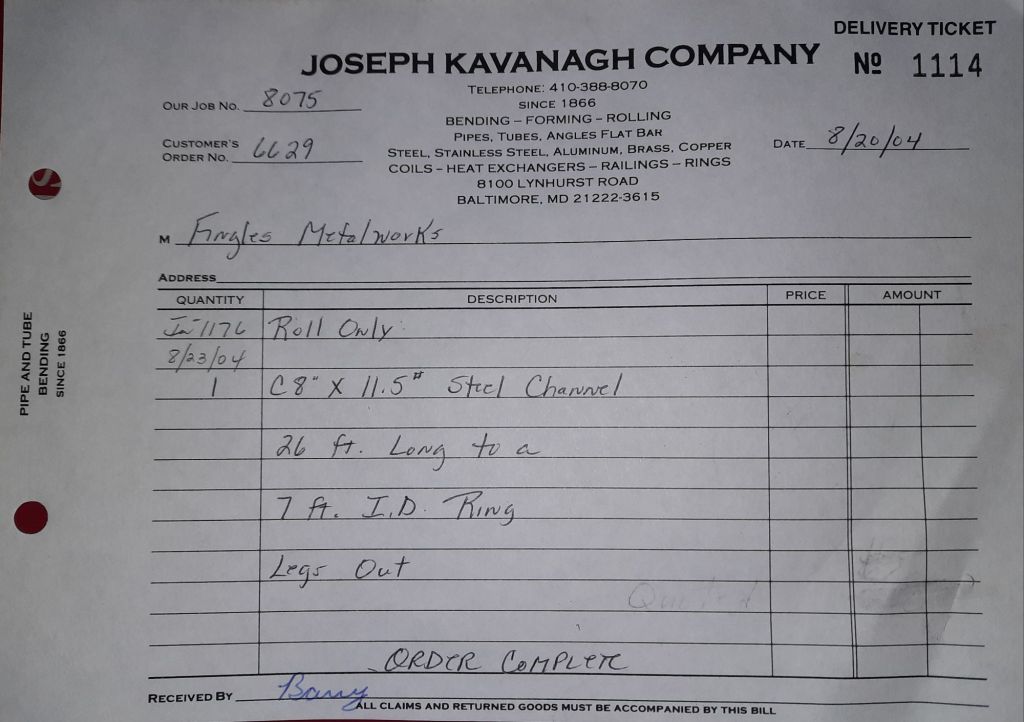 DELIVERY TICKET
JOSEPH KAVANAGH COMPANY
Nº 1114
TELEPHONE: 410-388-8070
SINCE 1866
BENDING – FORMING – ROLLING
PIPES, TUBES, ANGLES FLAT BAR
STEEL, STAINLESS STEEL, ALUMINUM, BRASS, COPPER
COILS – HEAT EXCHANGERS – RAILINGS – RINGS
8100 LYNHURST ROAD
BALTIMORE, MD 21222-3615
OUR JOB NO. 8075
CUSTOMER'S
ORDER NO. 6629
DATE 8/20/04
M Fingles Metalworks
ADDRESS
QUANTITY DESCRIPTION PRICE AMOUNT
1176 Roll Only
8/23/04
1 C 8" X 11.5# Steel Channel
26 ft. Long to a
7 ft. I.D. Ring
Legs Out
Quoted
ORDER COMPLETE
RECEIVED BY Barry
ALL CLAIMS AND RETURNED GOODS MUST BE ACCOMPANIED BY THIS BILL
PIPE AND TUBE
BENDING
SINCE 1866